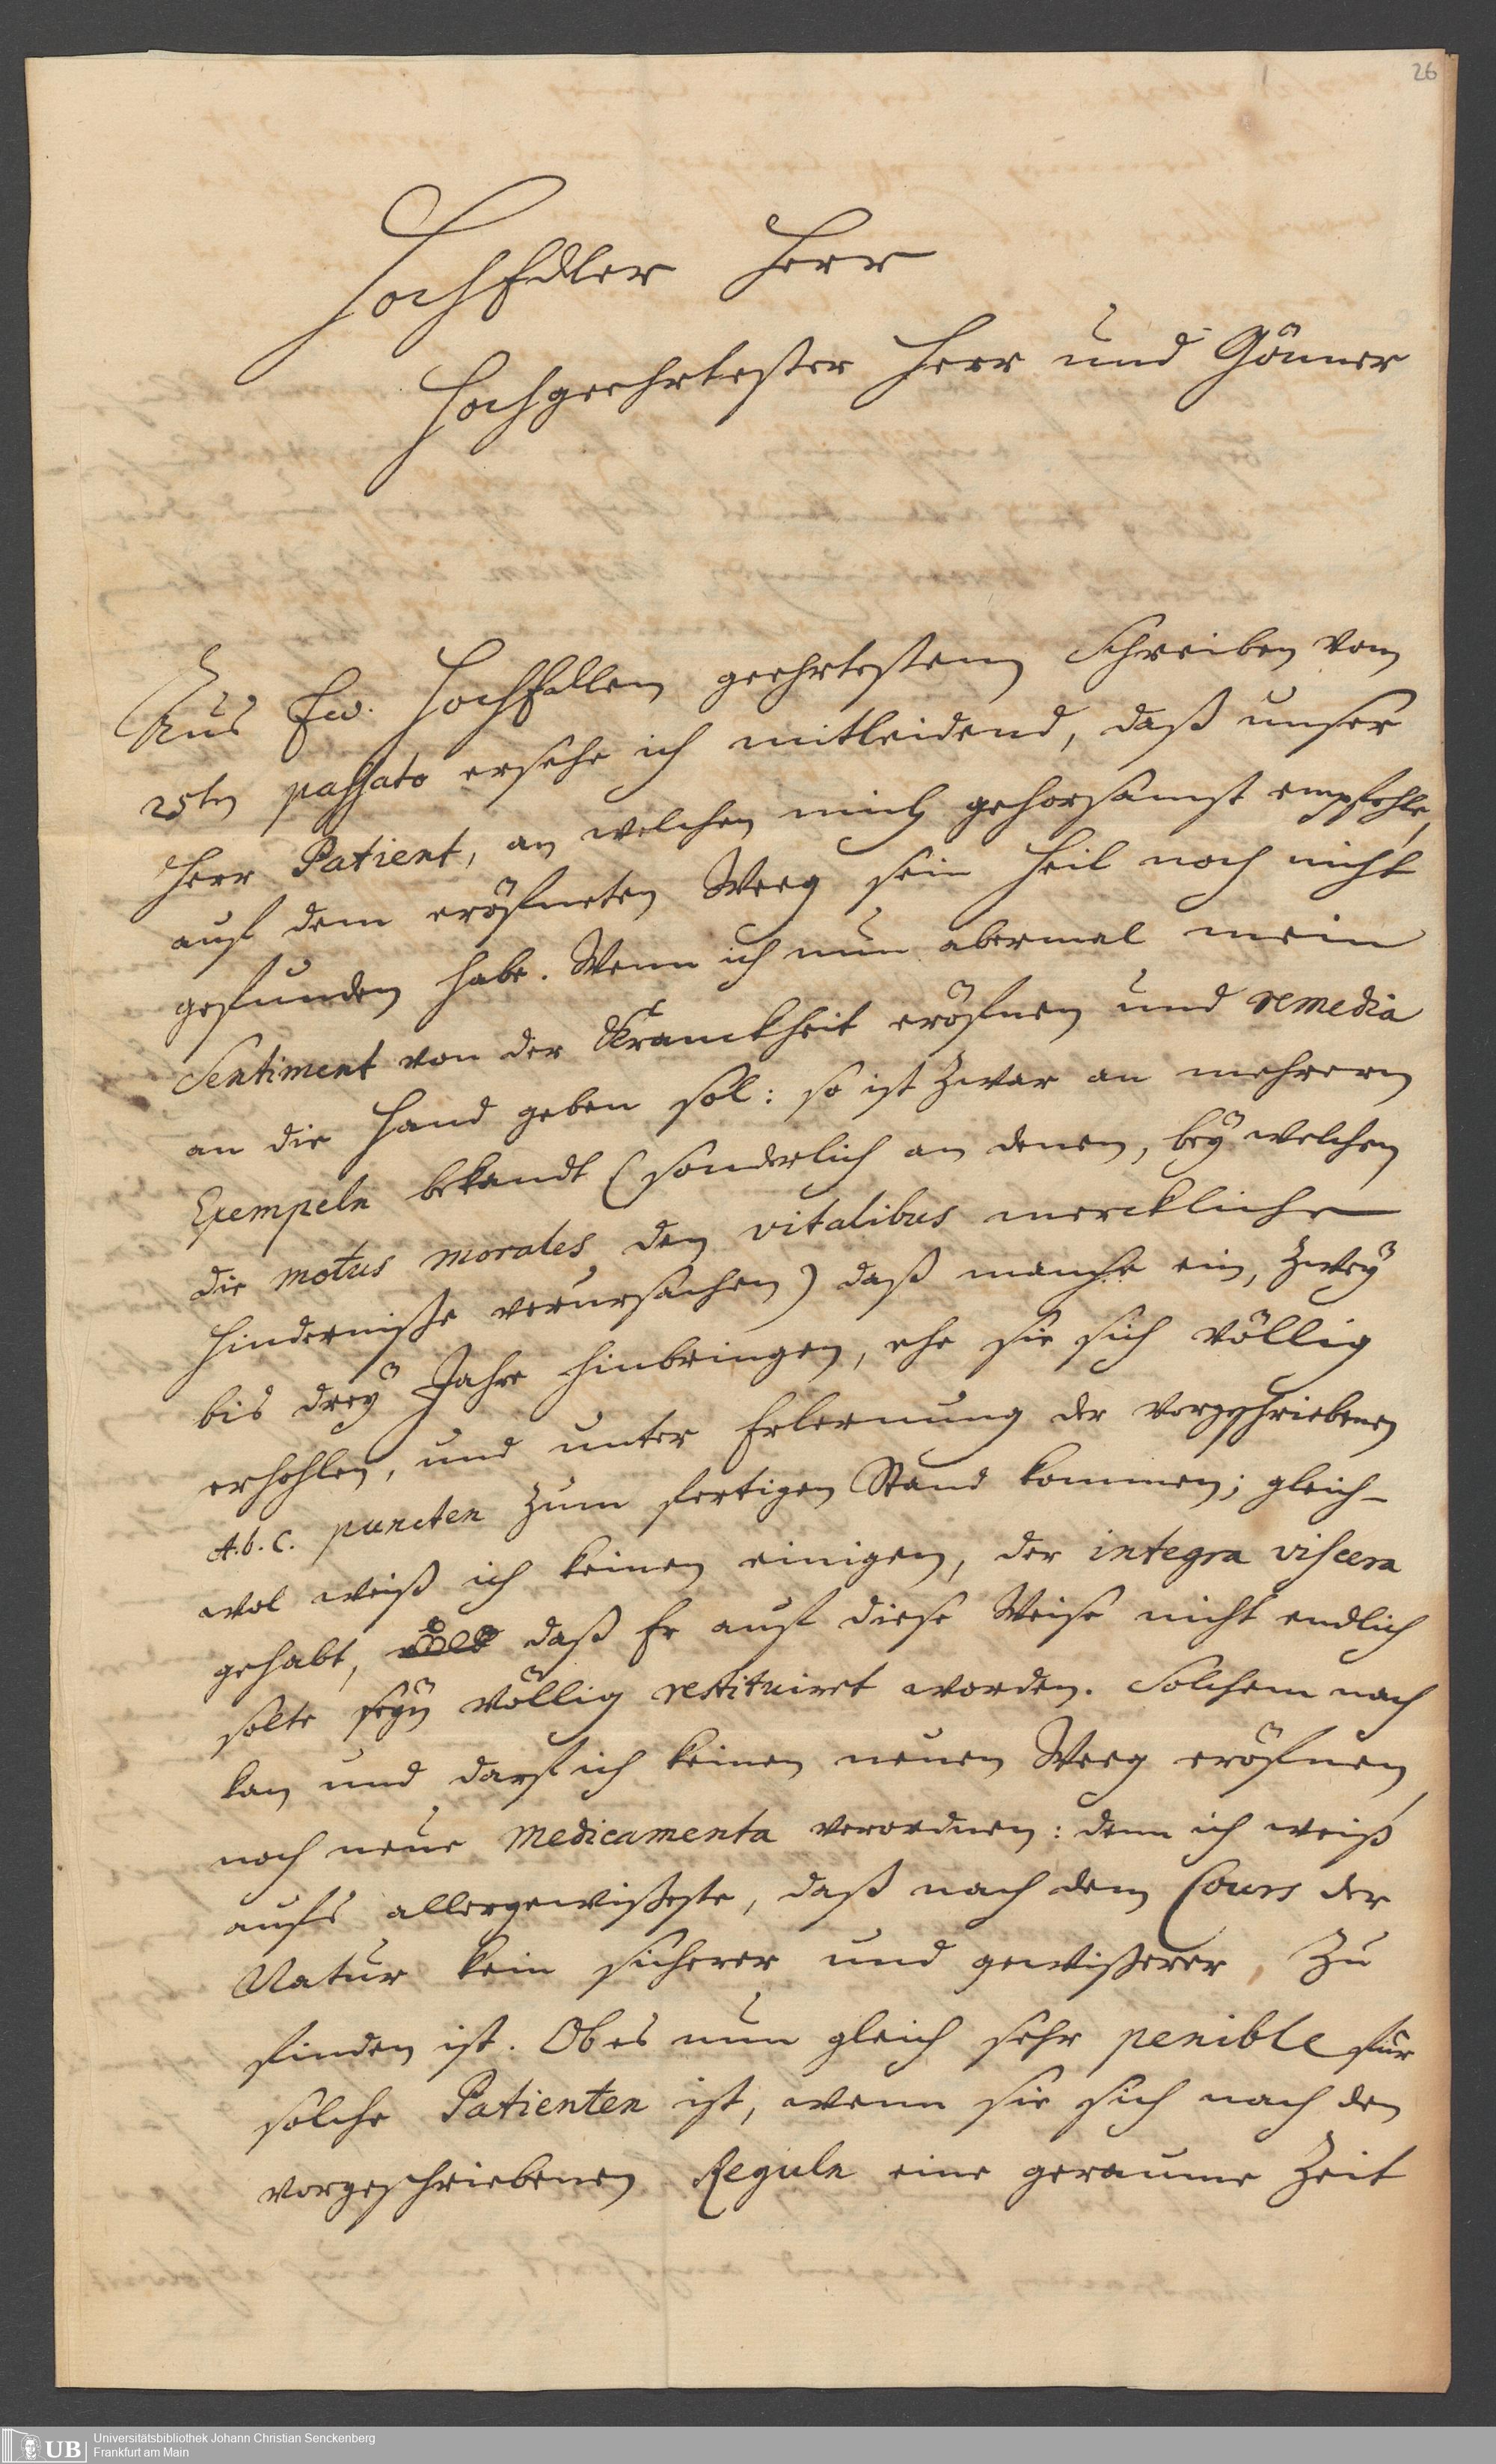 26
HochEdler Herr
Hochgeehrtester Herr und Gönner
Aus Ew. HochEdlen geehrtestem Schreiben vom
25ten passato ersehe ich mitleidend, daß unser
Herr Patient, an welchen mich gehorsamst empfehle,
auf dem eröfneten Weeg sein Heil noch nicht
gefunden habe. Wenn ich nun abermal mein
Sentiment von der Kranckheit eröfnen und remedia
an die Hand geben sol: so ist zwar an mehrern
Exempeln bekandt (sonderlich an denen, bey welchen
die motus morales den vitalibus merckliche
Hinderniße verursachen) daß manche ein, zwey
bis drey Jahre hinbringen, ehe sie sich völlig
erhohlen, und unter Erlernung der vorgschriebenen
A.b.c. puncten zum fertigen Stand kommen; gleich-
wol weiß ich keinen einigen, der integra viscera
gehabt, daß Er auf diese Weise nicht endlich
solte seyn völlig restituiret worden. Solchem nach
kan und darf ich keinen neuen Weeg eröfnen,
noch neue Medicamenta verordnen: denn ich weiß
aufs allergewißeste, daß nach dem Cours der
Natur kein sicherer und gewißerer, zu
finden ist. Ob es nun gleich sehr penible für
solche Patienten ist, wenn sie sich nach den
vorgeschriebenen Reguln eine geraume Zeit
UB
Universitätsbibliothek Johann Christian Senckenberg
Frankfurt am Main